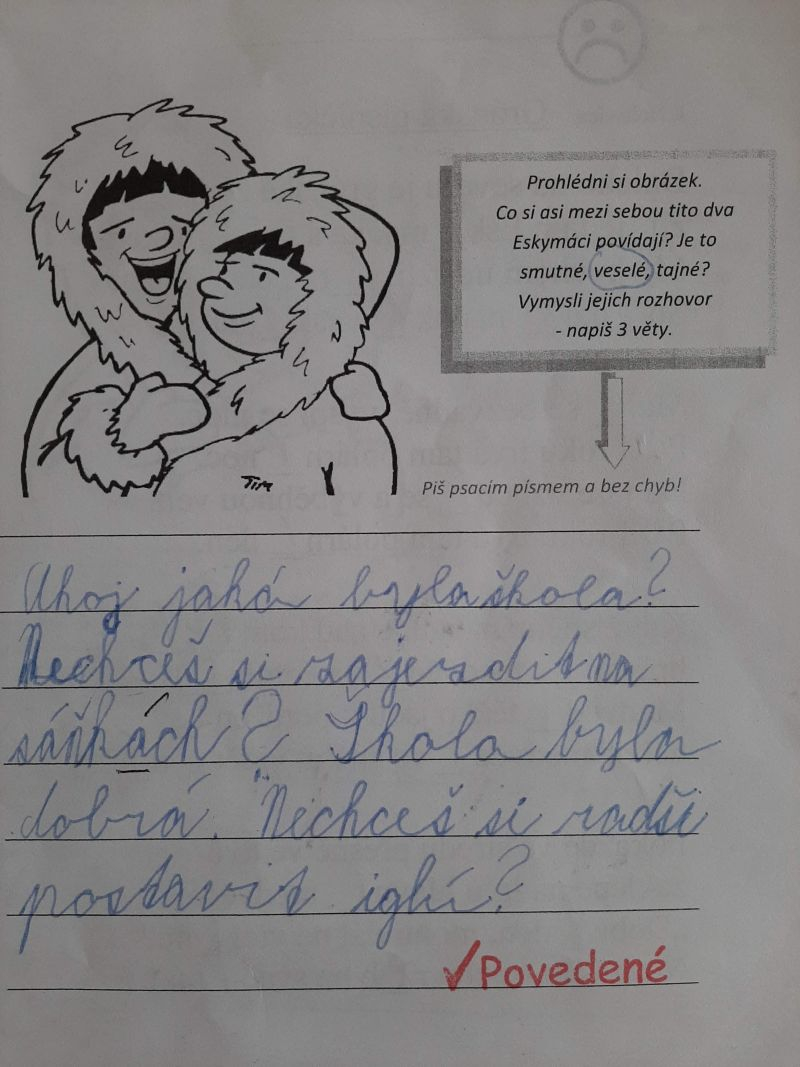 Prohlédni si obrázek.
Co si asi mezi sebou tito dva
Eskymáci povídají? Je to
smutné, veselé, tajné?
Vymysli jejich rozhovor
- napiš 3 věty.
Piš psacím písmem a bez chyb!
Tim
Ahoj jaká byla škola?
Nechceš si zajezdit na
sáňkách? Škola byla
dobrá. Nechceš si radši
postavit iglú?
✓Povedené